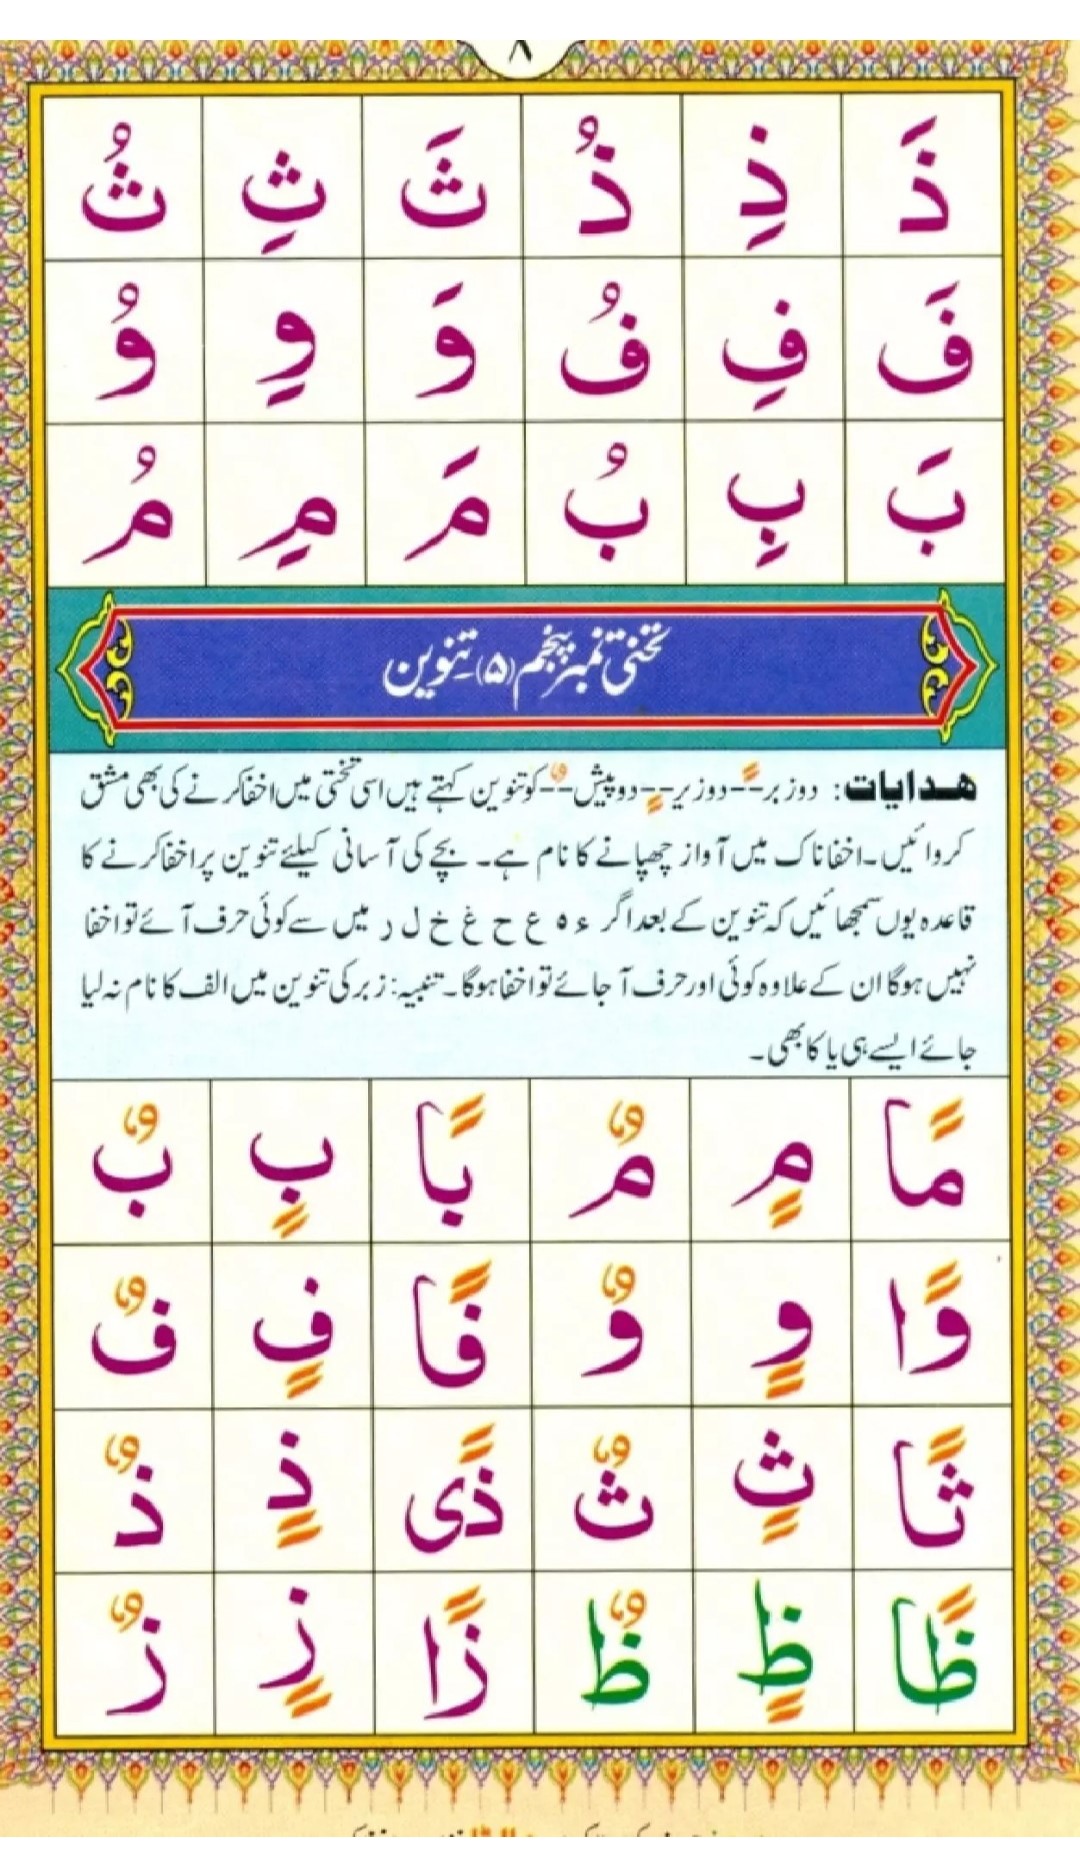 ٨
ذَ ذِ ذُ ثَ ثِ ثُ
فَ فِ فُ وَ وِ وُ
بَ بِ بُ مَ مِ مُ
تختی نمبر پنجم (۵)۔ تنوین
هدایات: دو زبر -ً- دو زیر -ٍ- دو پیش -ٌ- کو تنوین کہتے ہیں اسی تختی میں اخفا کرنے کی بھی مشق
کروائیں۔ اخفا ناک میں آواز چھپانے کا نام ہے۔ بچے کی آسانی کیلئے تنوین پر اخفا کرنے کا
قاعدہ یوں سمجھائیں کہ تنوین کے بعد اگر ء ہ ع ح غ خ ل ر میں سے کوئی حرف آئے تو اخفا
نہیں ہوگا ان کے علاوہ کوئی اور حرف آ جائے تو اخفا ہوگا۔ تنبیہ: زبر کی تنوین میں الف کا نام نہ لیا
جائے ایسے ہی یا کا بھی۔
مًا مٍ مٌ بًا بٍ بٌ
وًا وٍ وٌ فًا فٍ فٌ
ثًا ثٍ ثٌ ذًی ذٍ ذٌ
ظًا ظٍ ظٌ زًا زٍ زٌ